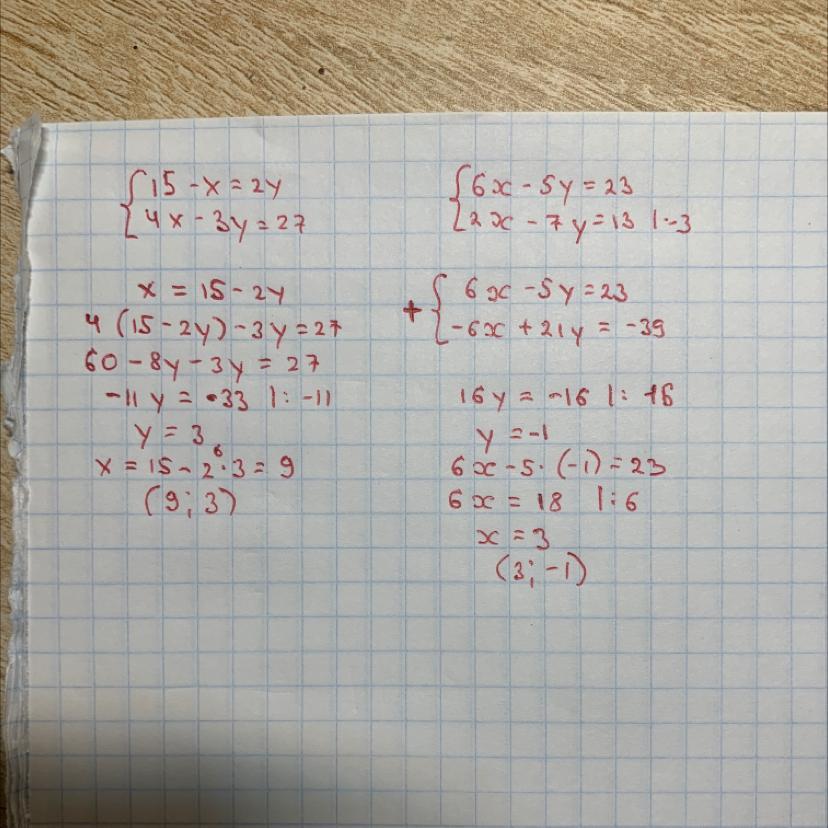 15 - x = 2y
4x - 3y = 27
x = 15 - 2y
4 (15 - 2y) - 3y = 27
60 - 8y - 3y = 27
-11 y = -33 |: -11
y = 3
6
x = 15 - 2 · 3 = 9
(9; 3)
6x - 5y = 23
2x - 7y = 13 |·-3
+ 6x - 5y = 23
-6x + 21y = -39
16y = -16 |: 16
y = -1
6x - 5 · (-1) = 23
6x = 18 |:6
x = 3
(3; -1)